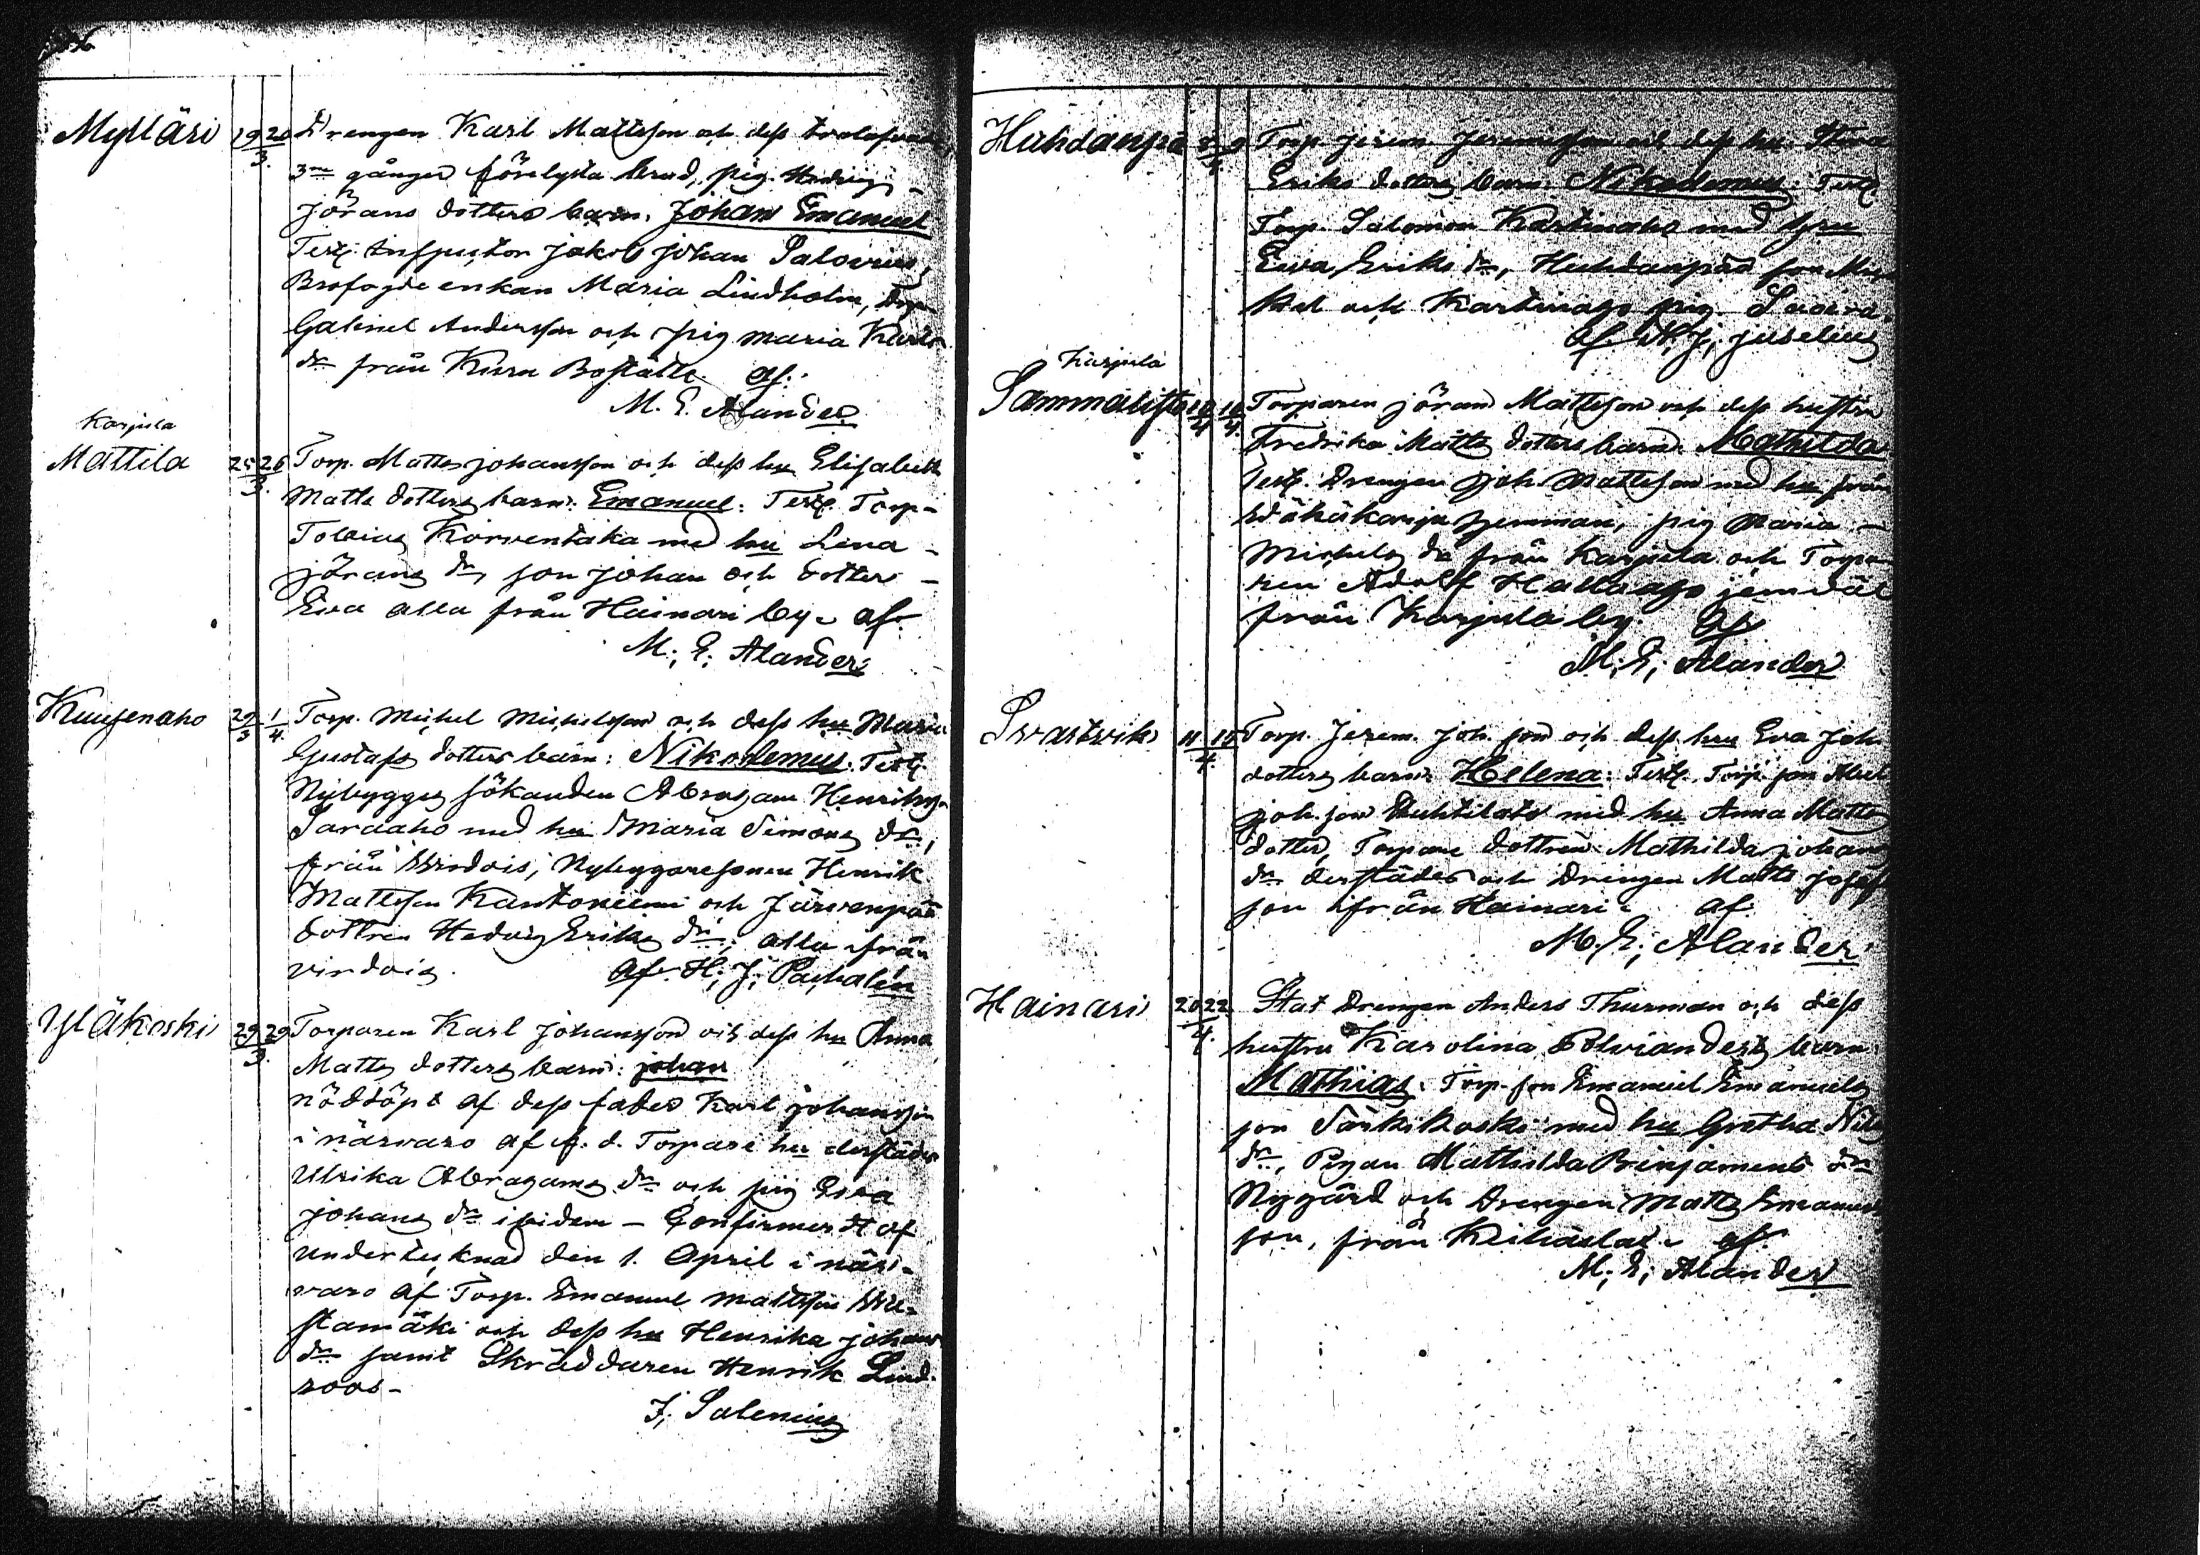 Mylläri 19/3 20 Drengen Karl Mattsson och dess
3ne gånger förelysta brud, pig. Hedvig
Jörans dotters barn. Johan Emanuel
Test. Inspector Jakob Johan Salovius,
Brofogde enkan Maria Lindholm,
Gabriel Andersson och pig Maria Karls
dr från Kuru Boställe. af.
M. E. Alander
Karjula
Mattila 25 26/3 Torp. Matts Johansson och dess hu Elisabeth
Matts dotters barn. Emanuel. Test. Torp.
Tobias Korventaka med hu Lena
Jörans dr, son Johan och dotter
Eva alla från Hainari by. af
M. E. Alander
Kuusenaho 29/3 1/4 Torp. Michel Michelsson och dess hu Maria
Gustafs dotters barn: Nikodemus. Test.
Nybygges sökanden Abraham Henriksson
Saraaho med hu Maria Simons dr,
från Virdois, Nybyggaresonen Henrik
Mattsson Kantoniemi och Järvenpää
dottren Hedvig Eriks dr, alla från
virdois. af H. J. Pachalén
Yläkoski 29 29/3 Torparen Karl Johansson och dess hu Anna
Matts dotters barn: Johan
nöddöpt af dess fader Karl Johansson
i närvaro af f. d. Torpare hu derstädes
Ulrika Abrahams dr och pig Eva
Johans dr ibidem – Confirmerdt af
undertecknad den 1. April i när-
varo af Torp. Emanuel Mattsson
stamäki och dess hu Henrika Johans
dr samt Skräddaren Henrik Lind-
roos –
J. Salenius
Huhdanpä Torp. Jerem. Jeremiasson och dess hu
Eriks dotters barn. Nikodemus. Test.
Torp. Salomon Kartinaho med hru
Eva Eriks dr, Huhdanpää son Mic
kel och Kartinaho pig
af N. J. Juselius
Karjula
Sammalisto 10/4 Torparen Jöran Mattsson och dess hustru
Fredrika Matts dotters barn. Mathilda
Test. Drengen Joh. Mattsson med hu från
hemman, pig Maria
Michels dr från Karjula och Torpa-
ren Adolf Hallaaho jemväl
från Karjula by. af
M. E. Alander
Svartvik 11 15/4 Torp. Jerem. Joh. son och dess hru Eva Joh.
dotters barn. Helena. Test. Torp. son
Joh. son Huhtilato med hu Anna Matts
dotter, Torpare dottren Mathilda Johans
dr derstädes och Drengen Matts Josefs
son ifrån Hainari. af
M. E. Alander
Hainari 20 22/4 Stat Drengen Anders Thurman och dess
hustru Karolina Polviander's barn
Mathias. Torp. son Emanuel Emanuels
son Särkikoski med hu Gretha Nils
dr, Pigan Mathilda Benjamins dr
Nygård och Drengen Matts Emanuels
son, från Keihäslax. af
M. E. Alander